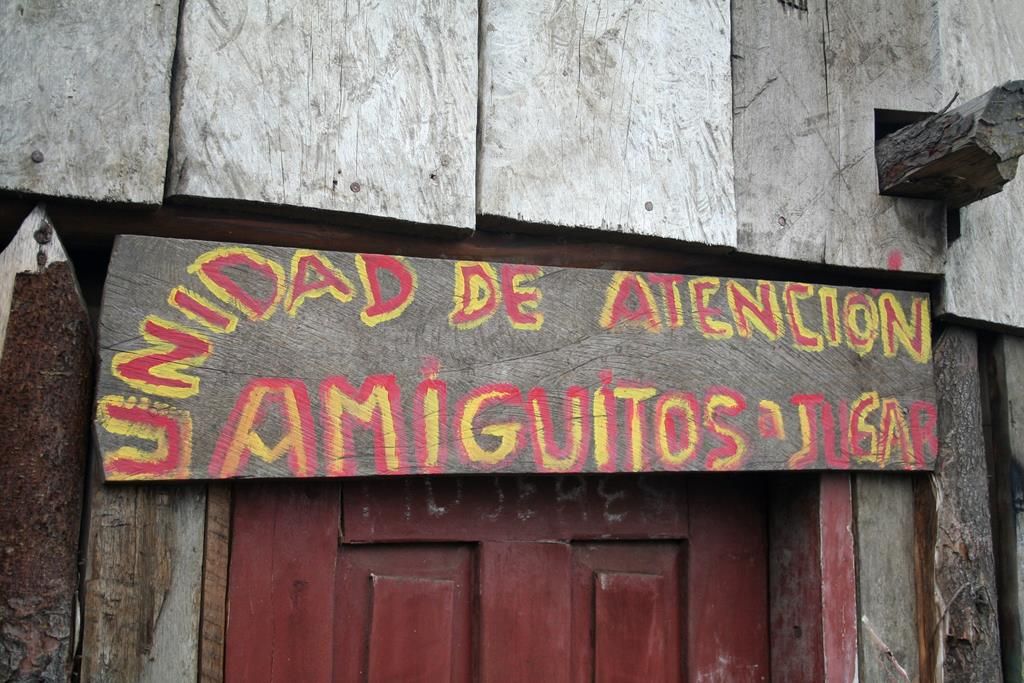 UNIDAD DE ATENCION
AMIGUITOS A JUGAR